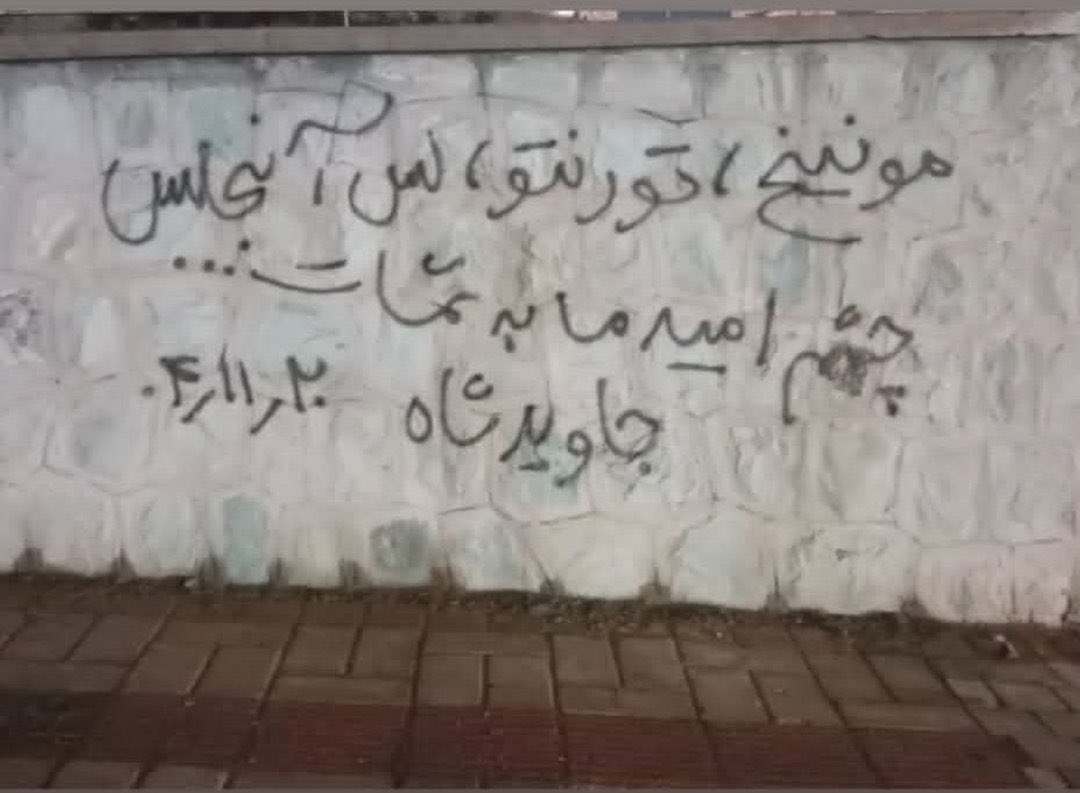 مونیخ، تورنتو، لس آنجلس
چشم امید ما به شماست...
جاوید شاه
۴٫۱۱٫۲۰